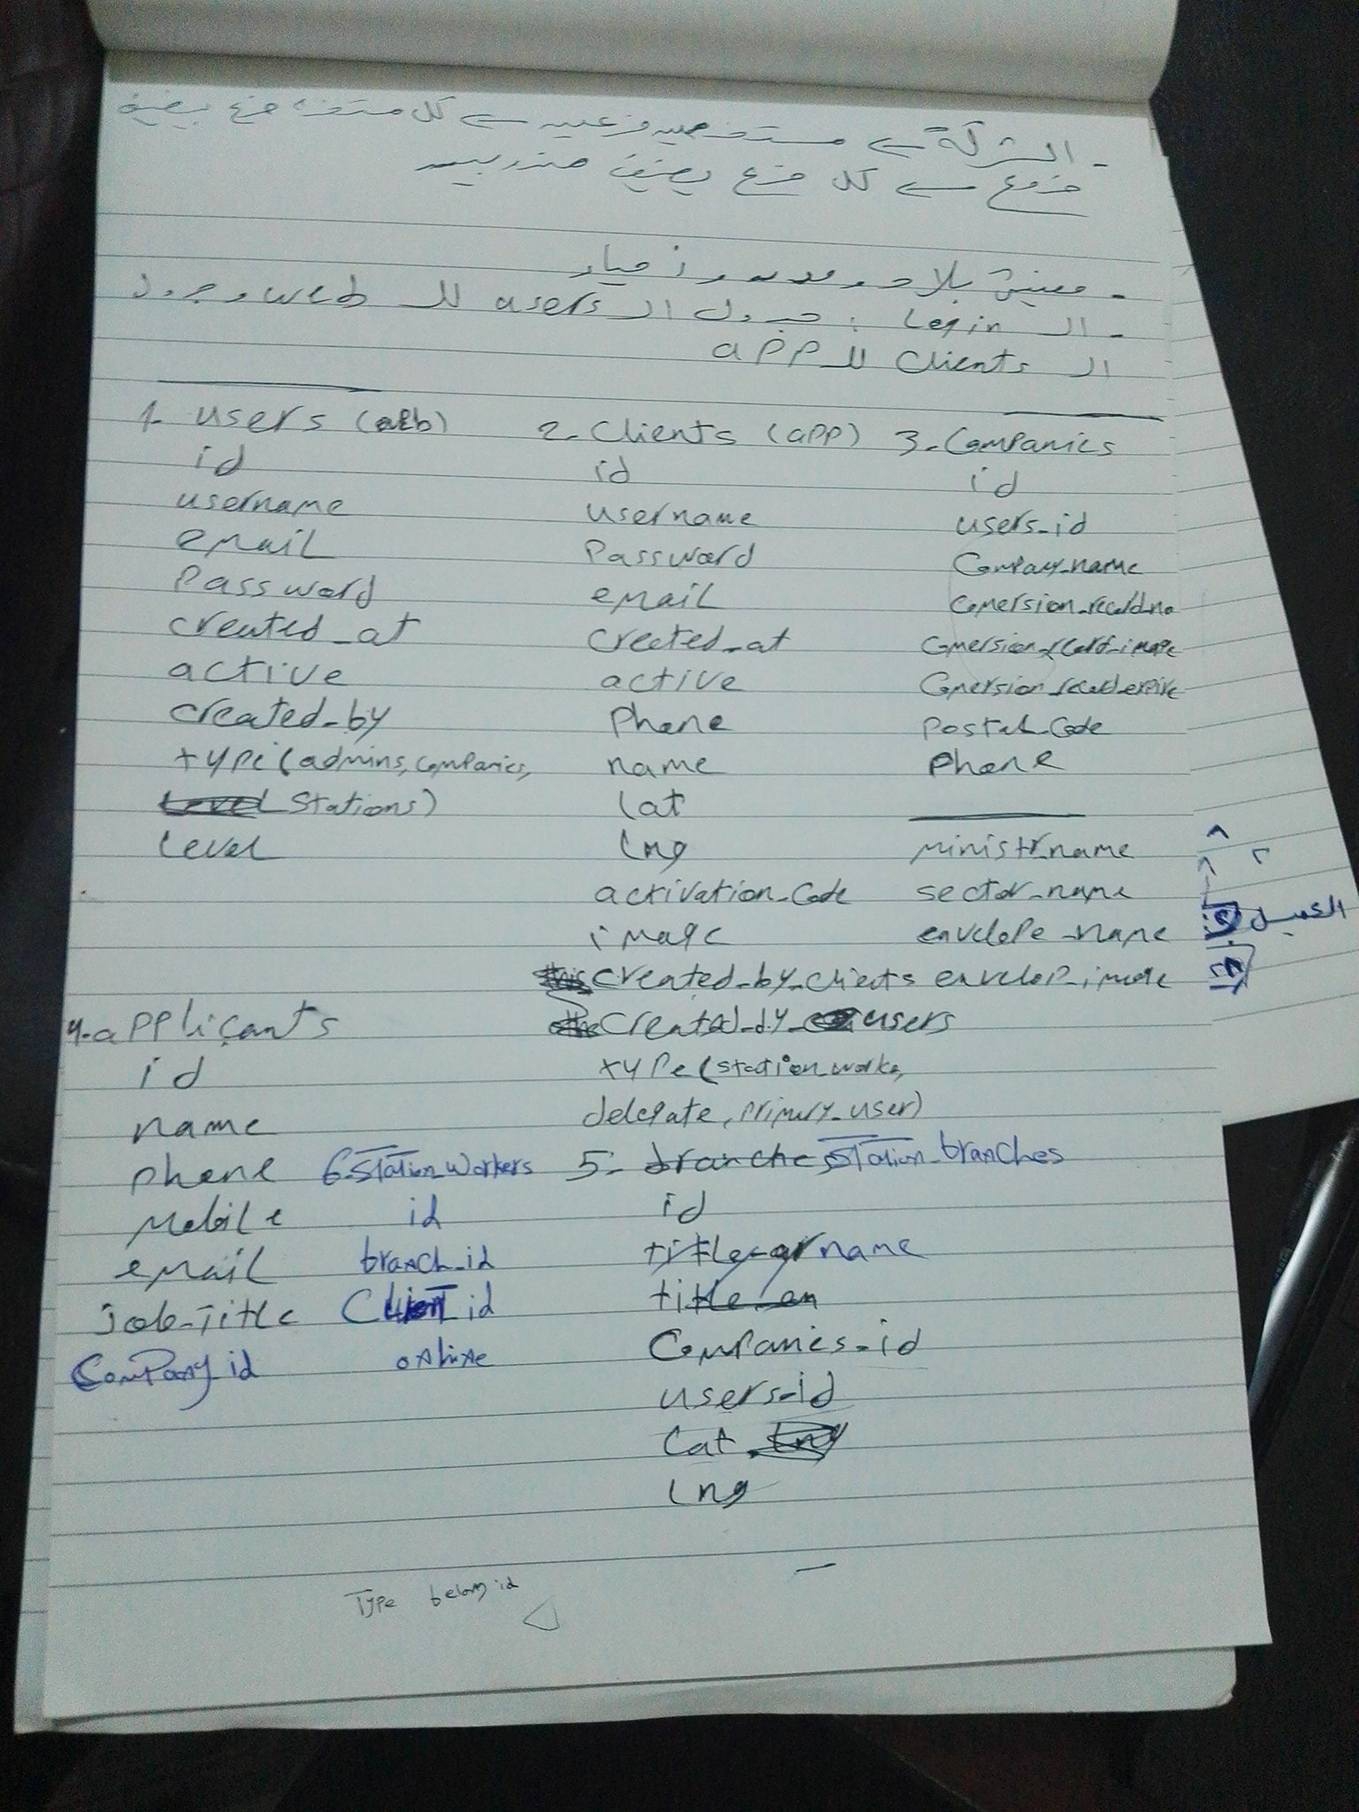 - الشركة ← مستخدمين فرعيين ← كل مستخدم فرع يضيف
فروع ← كل فرع يضيف مندوبين
- مفيش بلاد ومدن وأحياء
- الـ Login : جدول الـ users للـ web وجدول
الـ Clients للـ app
1- users (web)
id
username
email
Password
created_at
active
created_by
type (admins, Companies,
Stations)
level
2- Clients (app)
id
username
Password
email
creeted_at
active
Phone
name
lat
lng
activation_Code
image
created_by_clients
Created_by_users
type (station_works,
delegate, primary_user)
3- Companies
id
users_id
Compay_name
Comersion_record_no
Comersion_record_image
Comersion_record_expire
Postal_Code
Phone
ministr_name
sector_name
envelope_name
envelop_image
العميل
4- applicants
id
name
phone
Mobile
email
Job_Title
Company_id
6- Station_workers
id
branch_id
Client_id
online
5- branche Station_branches
id
title_ar name
title_en
Companies_id
users_id
Lat
lng
Type belong id